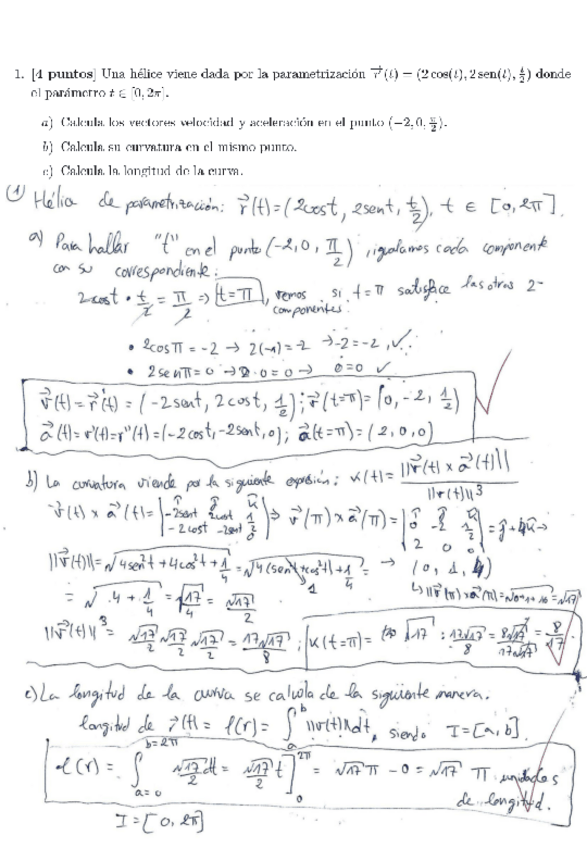 1. [4 puntos] Una hélice viene dada por la parametrización r⃗(t) = (2 cos(t), 2 sen(t), t/2) donde
el parámetro t ∈ [0, 2π].
a) Calcula los vectores velocidad y aceleración en el punto (−2, 0, π/2).
b) Calcula su curvatura en el mismo punto.
c) Calcula la longitud de la curva.
① Hélice de parametrización: r⃗(t)=(2cost, 2sent, t/2), t ∈ [0, 2π].
a) Para hallar "t" en el punto (-2, 0, π/2), igualamos cada componente
con su correspondiente:
t/2 = π/2 => t=π, vemos si t=π satisface las otras 2
componentes:
• 2cosπ = -2 → 2(-1) = -2 → -2 = -2, ✓
• 2senπ = 0 → 2·0 = 0 → 0=0 ✓
v⃗(t) = r⃗'(t) = (-2sent, 2cost, 1/2); v⃗(t=π) = (0, -2, 1/2)
a⃗(t) = v'(t) = r''(t) = (-2cost, -2sent, 0); a⃗(t=π) = (2, 0, 0)
b) La curvatura viende por la siguiente expresión: κ(t) = ||v⃗(t) x a⃗(t)|| / ||v(t)||³
v⃗(t) x a⃗(t) = |i j k; -2sent 2cost 1/2; -2cost -2sent 0| => v⃗(π) x a⃗(π) = |i j k; 0 -2 1/2; 2 0 0| = j + 4k →
||v⃗(t)|| = √(4sen²t + 4cos²t + 1/4) = √(4(sen²t + cos²t) + 1/4) = → (0, 1, 4)
= √(4 + 1/4) = √(17/4) = √17/2 ↳ ||v⃗(π) x a⃗(π)|| = √(0+1+16) = √17
||v⃗(t)||³ = √17/2 √17/2 √17/2 = 17√17/8; κ(t=π) = √17 : 17√17/8 = 8√17/17√17 = 8/17
c) La longitud de la curva se calcula de la siguiente manera.
longitud de r⃗(t) = ℓ(r) = ∫ₐᵇ ||v(t)||dt, siendo I=[a, b]
b=2π
ℓ(r) = ∫ √17/2 dt = √17/2 t]₀²π = √17 π - 0 = √17 π unidades
a=0 de longitud.
I = [0, 2π]